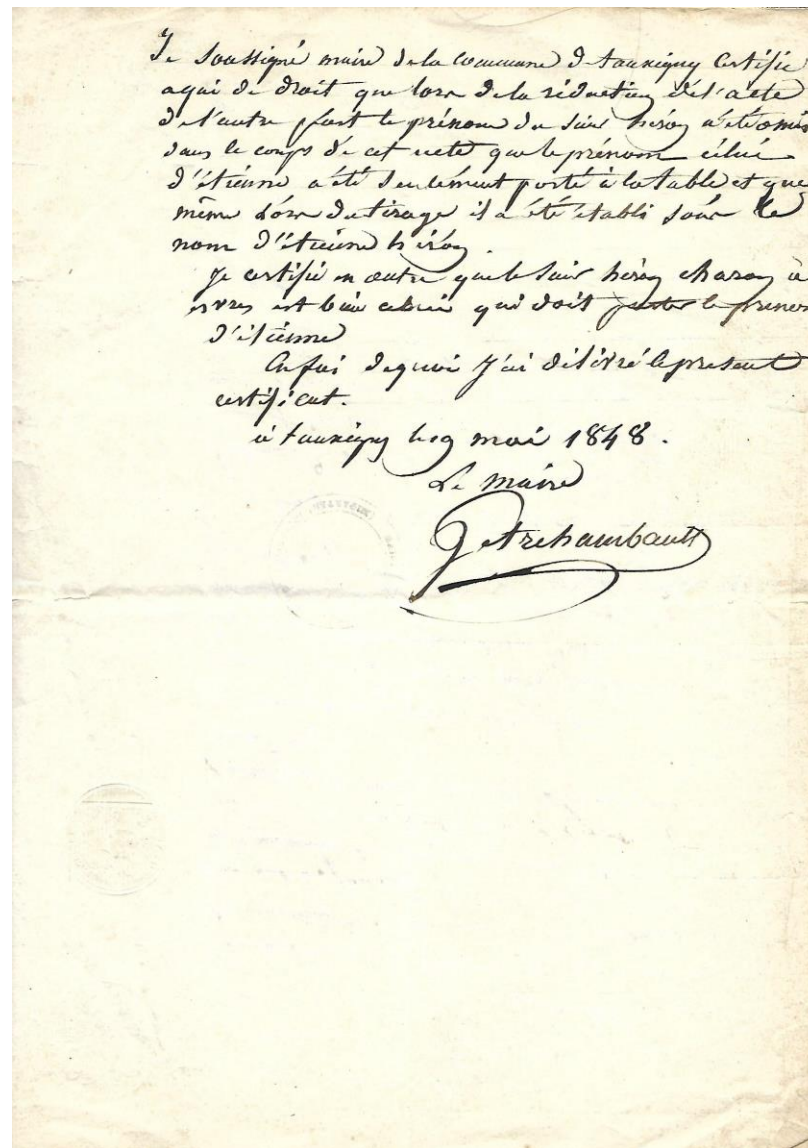 Je soussigné maire de la commune de tauxigny Certifie
a qui de droit que lors de la rédaction de l'acte
de l'autre part le prénom du sieur héron a été omis
dans le corps de cet acte que le prénom célui
d'étienne a été seulement porté à la table et que
même lors du tirage il a été établi sous le
nom d'étienne héron.
je certifie en outre que le sieur héron charon à
esvres est bien celui qui doit porter le prénom
d'étienne
En foi de quoi J'ai délivré le present
certificat.
à tauxigny le 9 mai 1848.
Le maire
Archambault